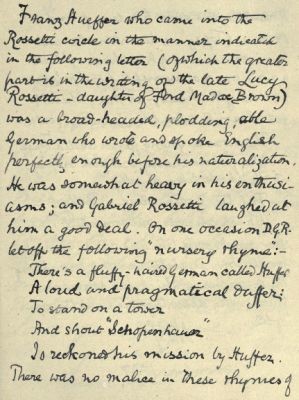 Franz Hueffer who came into the
Rossetti circle in the manner indicated
in the following letter (of which the greater
part is in the writing of the late Lucy
Rossetti - daughter of Ford Madox Brown)
was a broad-headed, plodding, able
German who wrote and spoke English
perfectly enough before his naturalization.
He was somewhat heavy in his enthusi-
asms; and Gabriel Rossetti laughed at
him a good deal. On one occasion D.G.R.
let off the following "nursery rhyme":-
There's a fluffy-haired German called Huffer
A loud and pragmatical duffer:
To stand on a tower
And shout "Schopenhauer"
Is reckoned his mission by Huffer.
There was no malice in these rhymes of